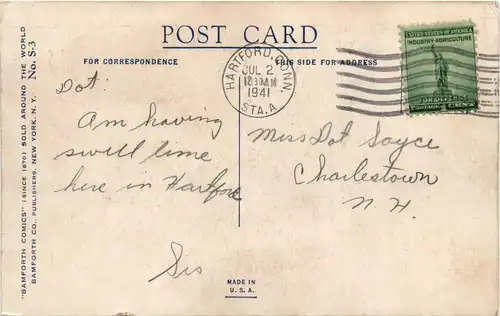 POST CARD
FOR CORRESPONDENCE
THIS SIDE FOR ADDRESS
HARTFORD, CONN
JUL 2
1941
STA. A
UNITED STATES OF AMERICA
INDUSTRY-AGRICULTURE
FOR DEFENSE
Dot:
Am having
swell time
here in Hartford
Sis
Miss Dot Sayce
Charlestown
N. H.
MADE IN
U. S. A.
"BAMFORTH COMICS" (SINCE 1870) SOLD AROUND THE WORLD
BAMFORTH CO., PUBLISHERS, NEW YORK, N. Y. No. S-3